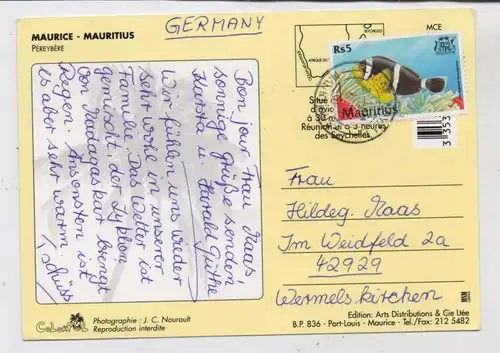 GERMANY
MAURICE - MAURITIUS
PÉREYBÈRE
Bon jour Frau Naas,
sonnige Grüße senden
Karsta u. Harald Güthe
Wir fühlen uns wieder
sehr wohl in unserer
Familie. Das Wetter ist
gemischt der Zyklon
von Madagaskar bringt
Regen. Ansonsten ist
es aber sehr warm.
Tschüss
MCE
SEYCHELLES
Rs5
Mauritius
Situé
d'avion
à 30 m
Réunion et à 3 heures
des Seychelles
Frau
Hildeg. Naas
Im Weidfeld 2a
42929
Wermelskirchen
Photographie : J. C. Nourault
Reproduction interdite
Edition: Arts Distributions & Cie Ltée
B.P. 836 - Port-Louis - Maurice - Tel./Fax: 212 5482